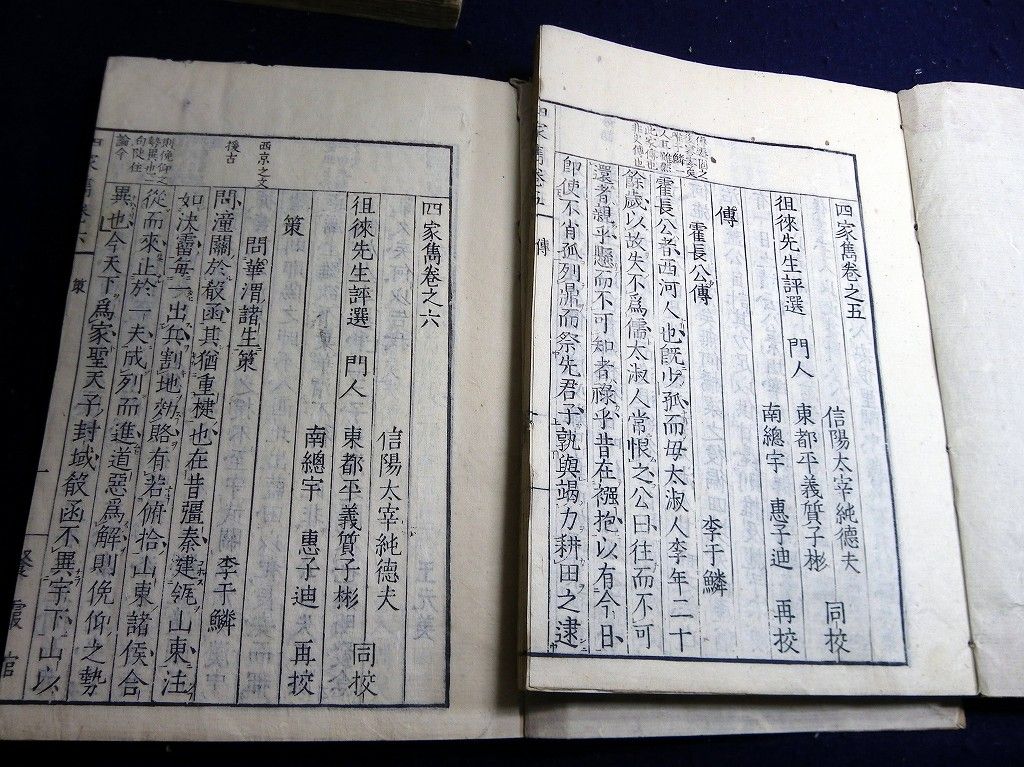 四家雋卷之五
信陽太宰純德夫
徂徠先生評選 門人 東都平義質子彬 同挍
南總宇 惠子迪 再挍
傳
霍長公傳 李于鱗
霍長公者西河人也旣少孤而母太淑人李年二十
餘歲以故失不爲儒太淑人常恨之公曰往而不可
還者親乎懸而不可知者祿乎昔在襁抱以有今日
卽使不肖孤列鼎而祭先君子孰與竭力耕田之逮
四家雋卷五 傳
四家雋卷之六
信陽太宰純德夫
徂徠先生評選 門人 東都平義質子彬 同挍
南總宇 惠子迪 再挍
策
問華渭諸生策 李于鱗
西京之文
援古
問潼關於殽函其猶重楗也在昔彊秦建瓴山東注
如決霤每一出兵割地効賂有若俯拾山東諸侯合
從而來止於一夫成列而進道惡爲解則俛仰之勢
異也今天下爲家聖天子封域殽函不異宇下山以
則俛仰之
勢異也二
句陡住
論今
四家雋卷六 策 一